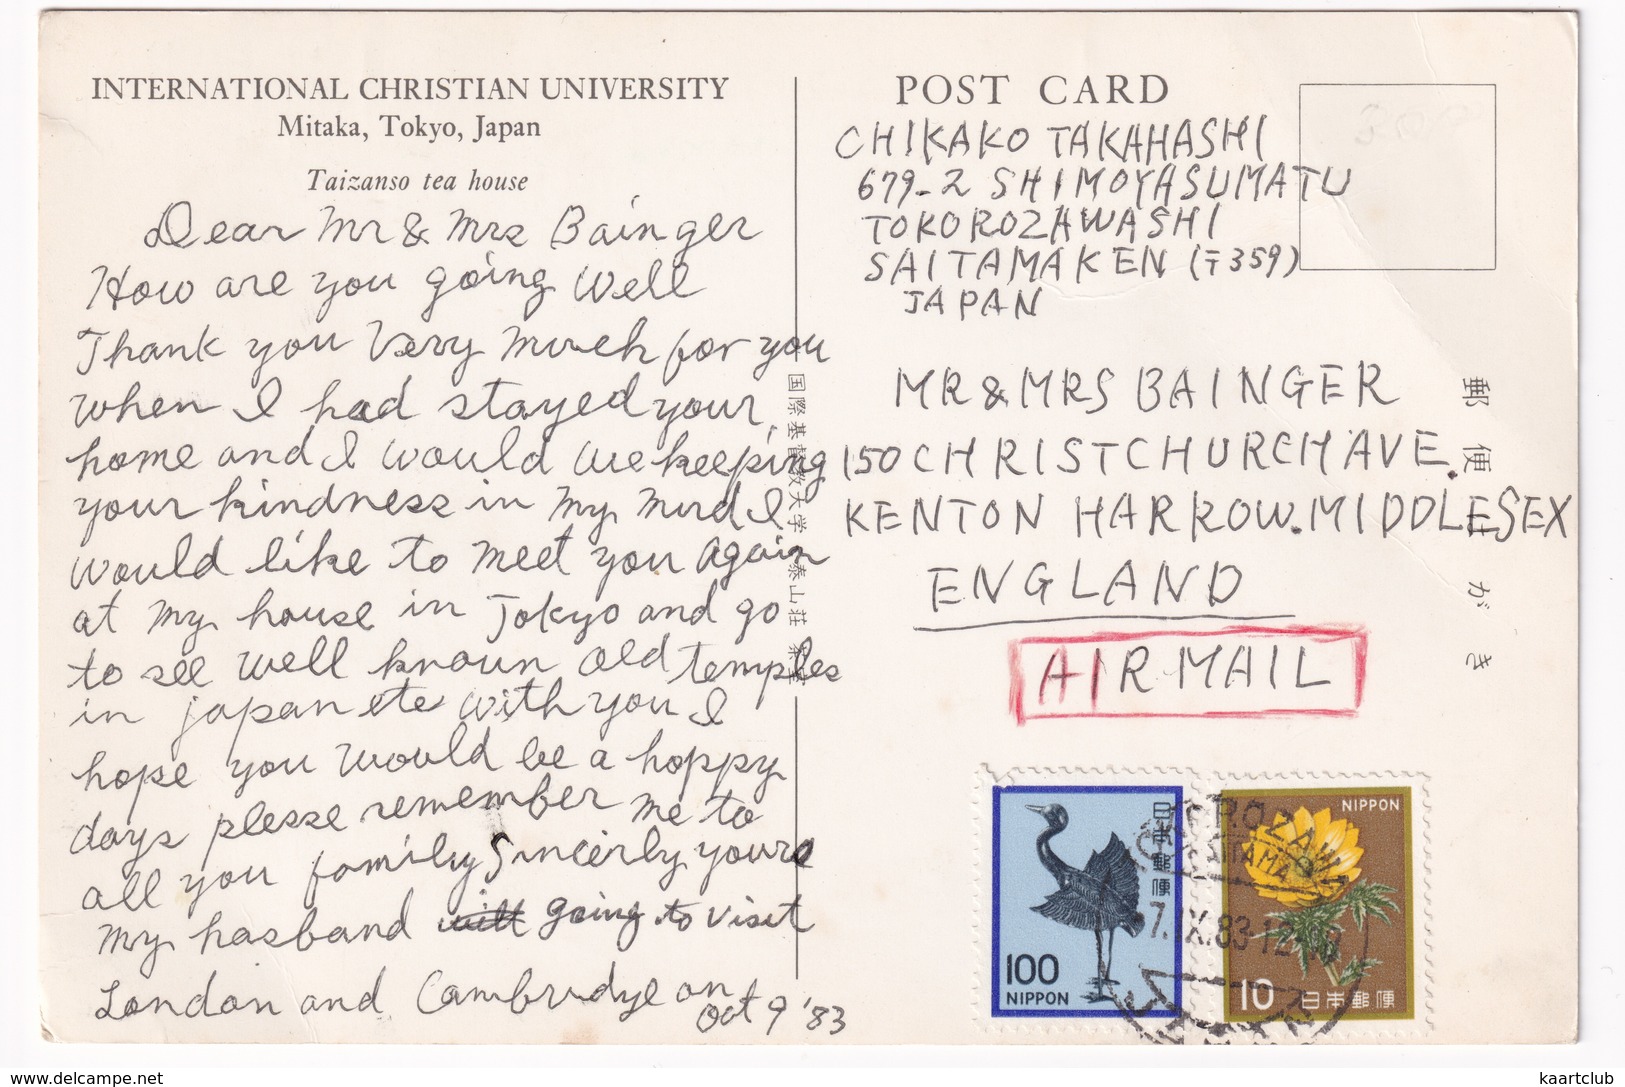 INTERNATIONAL CHRISTIAN UNIVERSITY
Mitaka, Tokyo, Japan
Taizanso tea house
Dear Mr & Mrs Bainger
How are you going Well
Thank you Very much for you
when I had stayed your
home and I would we keeping
your kindness in my mind I
would like to meet you again
at my house in Tokyo and go
to see well known old temples
in japan etc with you I
hope you would be a happy
days plesse remember me to
all you family Sincerly yours
my hasband will going to visit
London and Cambrudye on
Oct 9 '83
国際基督教大学 泰山荘 茶室
POST CARD
CHIKAKO TAKAHASHI
679-2 SHIMOYASUMATU
TOKOROZAWASHI
SAITAMAKEN (〒359)
JAPAN
300
MR & MRS BAINGER
150 CHRISTCHURCH AVE.
KENTON HARROW. MIDDLESEX
ENGLAND
AIR MAIL
郵便はがき
日本郵便
100
NIPPON
NIPPON
10 日本郵便
TOKOROZAWA
SAITAMA
7.IX.83.12-18
JAPAN
www.delcampe.net
kaartclub